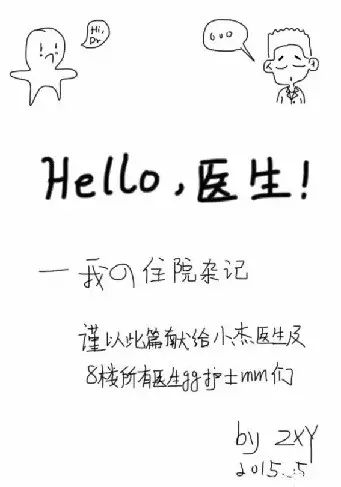 Hi,
Dr
ooo
Hello,医生!
—我の住院杂记
谨以此篇献给小杰医生及
8楼所有医生gg护士mm们
by ZXY
2015.5